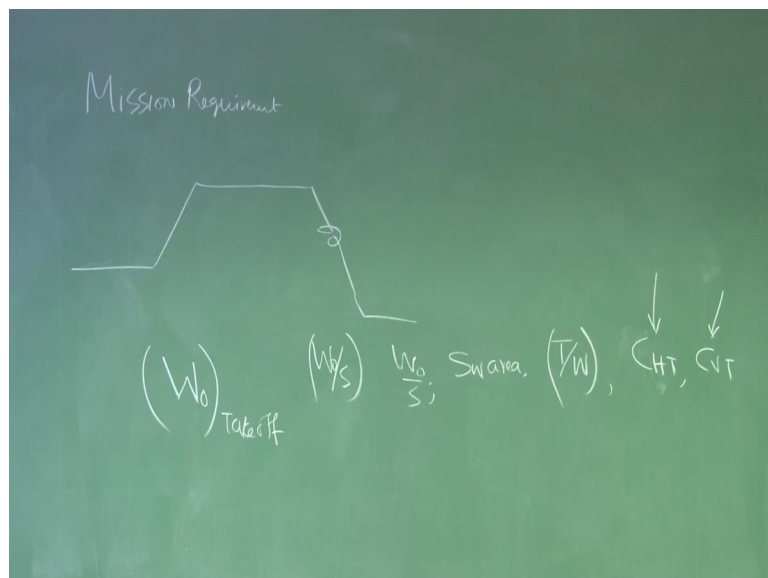 Mission Requirement
(W₀)Takeoff (W₀/S) W₀/S; Sw area, (T/W), CHT, CVT